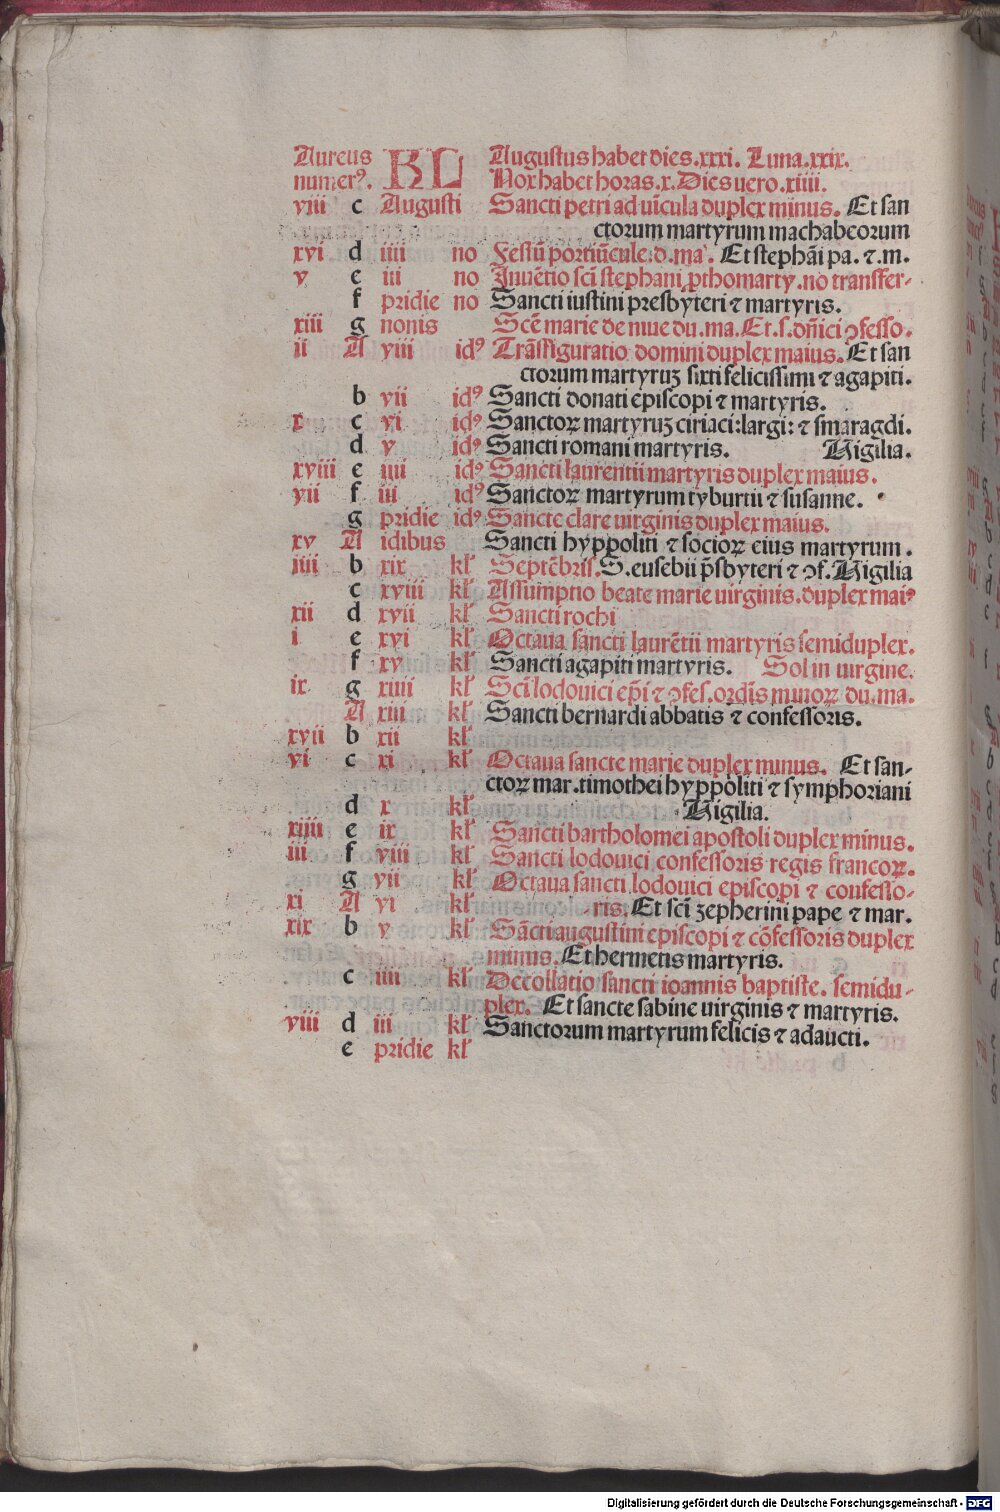 Aureus KL Augustus habet dies.xxxi. Luna.xxix.
numerꝰ. Nox habet horas.x.Dies uero.xiiii.
viii c Augusti Sancti petri ad uīcula duplex minus. Et san
ctorum martyrum machabeorum
xvi d iiii no Festū portiūcule:d.maꝰ. Et stephāi pa. ⁊.m.
v e iii no Inuētio scī stephani ꝓthomarty.no transfer-
f pridie no Sancti iustini presbyteri ⁊ martyris.
xiii g nonis Scē marie de niue du.ma.Et.s.dn̄ici ꝯfesso.
ii A viii idꝰ Trāsfiguratio domini duplex maius. Et san
ctorum martyruꝫ sixti felicissimi ⁊ agapiti.
b vii idꝰ Sancti donati episcopi ⁊ martyris.
x c vi idꝰ Sanctoꝝ martyruꝫ ciriaci:largi: ⁊ smaragdi.
d v idꝰ Sancti romani martyris. Uigilia.
xviii e iiii idꝰ Sancti laurentii martyris duplex maius.
vii f iii idꝰ Sanctoꝝ martyrum tyburtii ⁊ susanne.
g pridie idꝰ Sancte clare uirginis duplex maius.
xv A idibus Sancti hyppoliti ⁊ socioꝝ eius martyrum.
iiii b xix kł Septēbris.S.eusebii p̄sbyteri ⁊ ꝯf.Uigilia
c xviii kł Assumptio beate marie uirginis.duplex maiꝰ
xii d xvii kł Sancti rochi
i e xvi kł Octaua sancti laurētii martyris semiduplex.
f xv kł Sancti agapiti martyris. Sol in uirgine.
ix g xiiii kł Scī lodouici ep̄i ⁊ ꝯfes.ordīs minoꝝ du.ma.
A xiii kł Sancti bernardi abbatis ⁊ confessoris.
xvii b xii kł
vi c xi kł Octaua sancte marie duplex minus. Et san-
ctoꝝ mar.timothei hyppoliti ⁊ symphoriani
d x kł Uigilia.
xiiii e ix kł Sancti bartholomei apostoli duplex minus.
iii f viii kł Sancti lodouici confessoris regis francoꝝ.
g vii kł Octaua sancti lodouici episcopi ⁊ confesso-
xi A vi kł ris. Et scī zepherini pape ⁊ mar.
xix b v kł Sācti augustini episcopi ⁊ cōfessoris duplex
minus. Et hermetis martyris.
c iiii kł Decollatio sancti ioannis baptiste. semidu-
plex. Et sancte sabine uirginis ⁊ martyris.
viii d iii kł Sanctorum martyrum felicis ⁊ adaucti.
e pridie kł
Digitalisierung gefördert durch die Deutsche Forschungsgemeinschaft - DFG